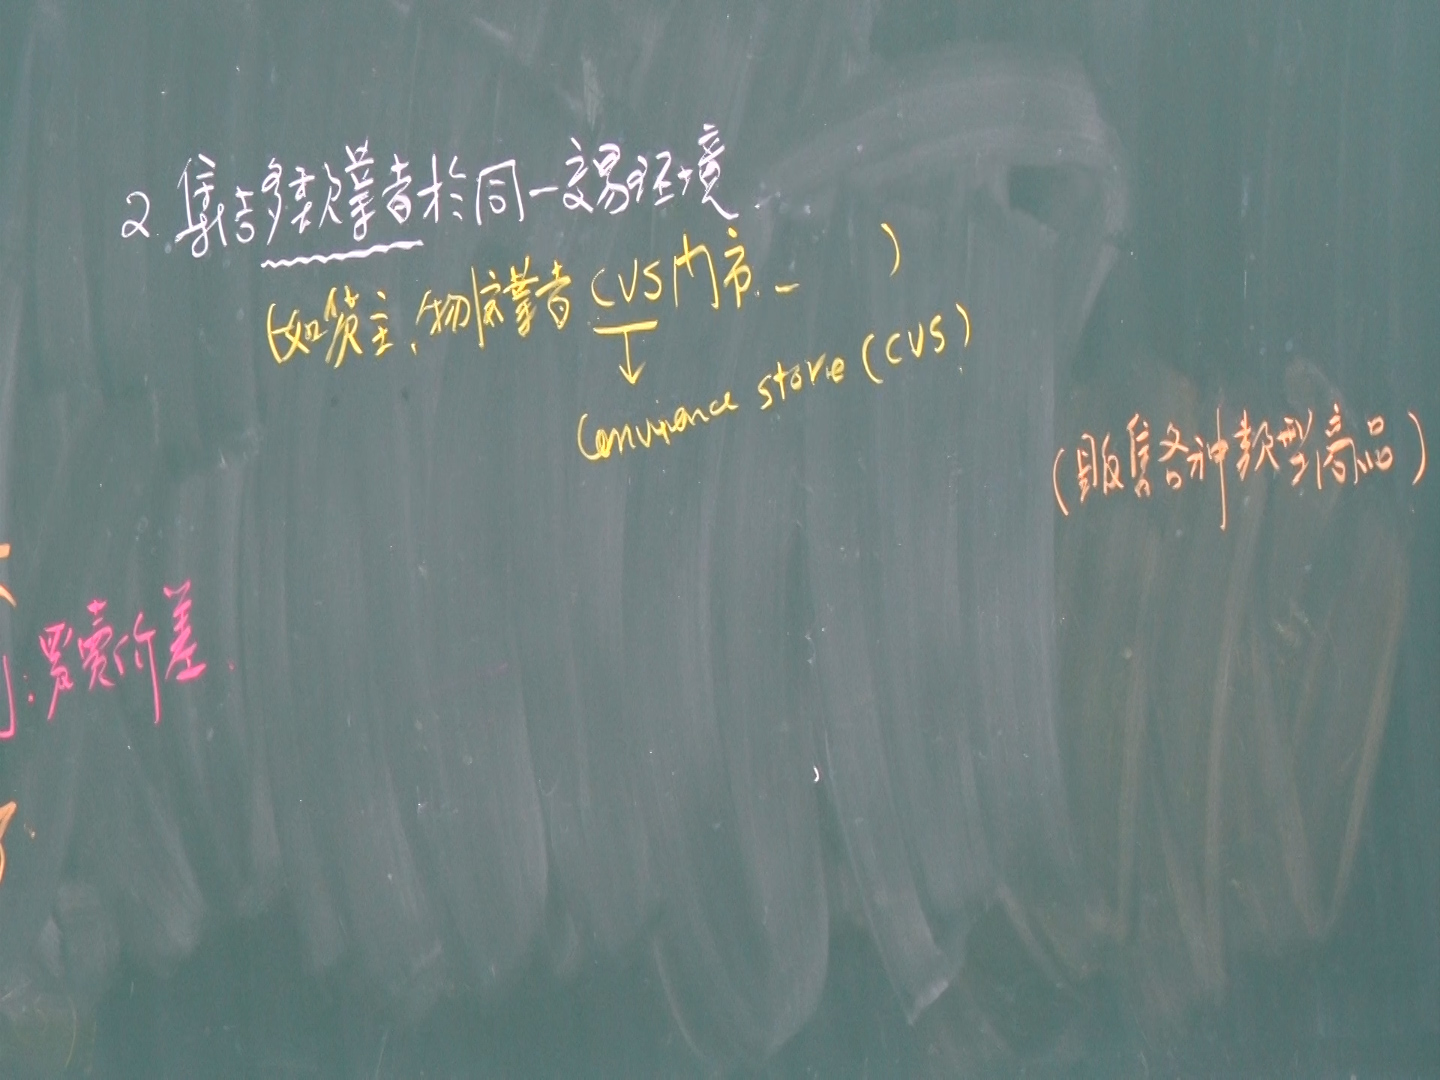 2. 集合多類業者於同一交易环境
(如貨主,物流業者 CVS门市.－ )
Convenience store (CVS)
(販售各种類型商品)
:買賣价差.